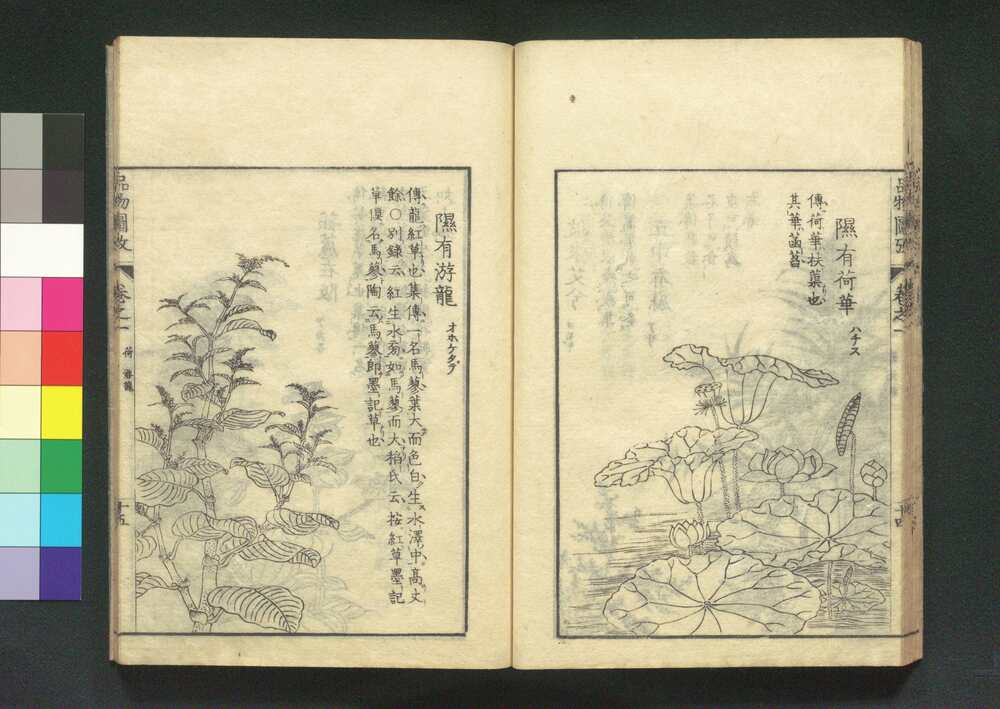 隰有荷華
ハチス
傳荷華扶蕖也
其華菡萏
品物圖攷
卷之一
十四
隰有游龍
オホケタデ
傳龍紅草也集傳一名馬蓼葉大而色白生水澤中高丈
餘○別錄云紅生水旁如馬蓼而大稻氏云按紅草墨記
草俱名馬蓼陶云馬蓼即墨記草也
品物圖攷
卷之一
荷
龍
十五